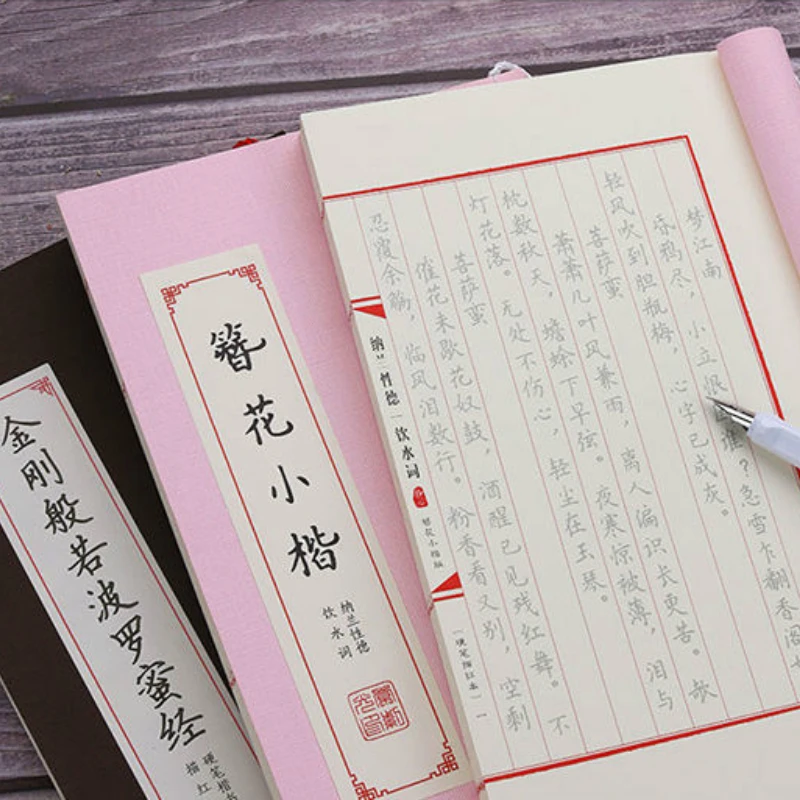 梦江南
昏鸦尽，小立恨谁？急雪乍翻香阁
轻风吹到胆瓶梅，心字已成灰。
菩萨蛮
萧萧几叶风兼雨，离人偏识长更苦。欹
枕数秋天，蟾蜍下早弦。夜寒惊被薄，泪与
灯花落。无处不伤心，轻尘在玉琴。
菩萨蛮
催花未歇花奴鼓，酒醒已见残红舞。不
忍覆余觞，临风泪数行。粉香看又别，空剩
纳兰性德｜饮水词
簪花小楷版
［硬笔描红本］
簪花小楷
纳兰性德
饮水词
金刚般若波罗蜜经
硬笔楷书
描红